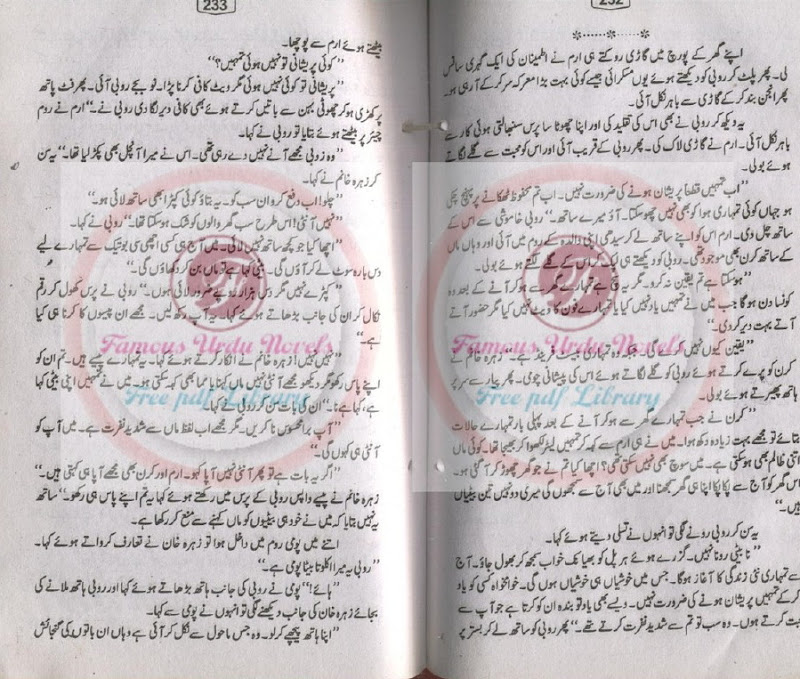 232
اپنے گھر کے پورچ میں گاڑی روکتے ہی ارم نے اطمینان کی ایک گہری سانس
لی۔ پھر پلٹ کر روبی کو دیکھتے ہوئے یوں مسکرائی جیسے کوئی بہت بڑا معرکہ سر کر کے آ رہی ہو۔
پھر انجن بند کر کے گاڑی سے باہر نکل آئی۔
یہ دیکھ کر روبی نے بھی اس کی تقلید کی اور اپنا چھوٹا سا پرس سنبھالتی ہوئی کار سے
باہر نکل آئی۔ ارم نے گاڑی لاک کی۔ پھر روبی کے قریب آئی اور اس کو محبت سے گلے لگاتے
ہوئے بولی۔
"اب تمہیں قطعاً پریشان ہونے کی ضرورت نہیں۔ اب تم محفوظ ٹھکانے پر پہنچ چکی
ہو جہاں کوئی تمہاری ہوا کو بھی نہیں چھو سکتا۔ آؤ میرے ساتھ۔" روبی خاموشی سے اس کے
ساتھ چل دی۔ ارم اس کو اپنے ساتھ لے کر سیدھی اپنی والدہ کے روم میں آئی اور وہاں ماں
کے ساتھ کرن بھی موجود تھی۔ روبی کو دیکھتے ہی اس کے گلے لگتے ہوئے بولی۔
"ہو سکتا ہے تم یقین نہ کرو۔ مگر یہ تمہارے گھر سے ہو کر آنے کے بعد وہ
کونسا دن ہو گا جب میں نے تمہیں یاد نہیں کیا یا تمہارے فون کا ویٹ نہیں کیا مگر حضور آتے
آتے بہت دیر کر دی۔"
"یقین کیوں نہیں کرے گی۔ جبکہ وہ تمہاری بیسٹ فرینڈ ہے۔" زہرہ خانم نے
کرن کو پرے کرتے ہوئے روبی کو گلے لگاتے ہوئے اس کی پیشانی چومی۔ پھر پیار سے سر پر
ہاتھ پھیرتے ہوئے بولی۔
"کرن نے جب تمہارے گھر سے ہو کر آنے کے بعد پہلی بار تمہارے حالات
بتائے تو مجھے بہت زیادہ دکھ ہوا۔ میں نے ہی ارم سے کہہ کر تمہیں لیٹر لکھوا کر بھیجا تھا۔ کوئی ماں
اتنی ظالم بھی ہو سکتی ہے۔ میں سوچ بھی نہیں سکتی تھی؟ اچھا کیا تم نے جو گھر چھوڑ کر آ گئی ہو۔
اس گھر کو آج سے پکا پکا اپنا ہی گھر سمجھنا اور میں بھی آج سے سمجھوں گی میری دو نہیں تین بیٹیاں
ہیں۔"
یہ سن کر روبی رونے لگی تو انہوں نے تسلی دیتے ہوئے کہا۔
"نا بیٹی رونا نہیں۔ گزرے ہوئے ہر پل کو بھیانک خواب سمجھ کر بھول جاؤ۔ آج
سے تمہاری نئی زندگی کا آغاز ہو گا۔ جس میں خوشیاں ہی خوشیاں ہوں گی۔ خوامخواہ کسی کو یاد
کر کے تمہیں پریشان ہونے کی ضرورت نہیں۔ ویسے بھی یاد تو بندہ ان کو کرتا ہے جو آپ سے
محبت کرتے ہوں۔ وہ سب تو تم سے شدید نفرت کرتے تھے۔" پھر روبی کو ساتھ لے کر بستر پر
233
بیٹھتے ہوئے ارم سے پوچھا۔
"کوئی پریشانی تو نہیں ہوئی تمہیں؟"
"پریشانی تو کوئی نہیں ہوئی مگر ویٹ کافی کرنا پڑا۔ نو بجے روبی آئی۔ پھر فٹ پاتھ
پر کھڑی ہو کر چھوٹی بہن سے باتیں کرتے ہوئے بھی کافی دیر لگا دی روبی نے۔" ارم نے روم
چیئر پر بیٹھتے ہوئے بتایا تو روبی نے کہا۔
"وہ زوبی مجھے آنے نہیں دے رہی تھی۔ اس نے میرا آنچل بھی پکڑ لیا تھا۔" یہ سن
کر زہرہ خانم نے کہا۔
"چلو! اب دفع کرو ان سب کو۔ یہ بتاؤ کوئی کپڑا بھی ساتھ لائی ہو۔"
"نہیں آنٹی! اس طرح سب گھر والوں کو شک ہو سکتا تھا۔" روبی نے کہا۔
"اچھا کیا جو کچھ ساتھ نہیں لائی۔ میں آج ہی کسی اچھی سی بوتیک سے تمہارے لیے
دس بارہ سوٹ لے کر آؤں گی۔ بیٹی کہا ہے تو ماں بن کر دکھاؤں گی۔"
"کپڑے نہیں مگر دس ہزار روپے ضرور لائی ہوں۔" روبی نے پرس کھول کر رقم
نکال کر ان کی جانب بڑھاتے ہوئے کہا۔ "یہ آپ رکھ لیں۔ مجھے ان پیسوں کا کرنا ہی کیا
ہے۔"
"نہیں نہیں! زہرہ خانم نے انکار کرتے ہوئے کہا۔ یہ تمہارے پیسے ہیں۔ تم ان کو
اپنے پاس رکھو مگر دیکھو مجھے آنٹی نہیں ماں کہنا یا مما بھی کہہ سکتی ہو۔ میں نے تمہیں اپنی بیٹی کہا
ہے، کہا ہے نا۔" ان کی بات سن کر روبی نے کہا۔
"آپ برا محسوس نا کریں۔ مگر مجھے اب لفظ ماں سے شدید نفرت ہے۔ میں آپ کو
آنٹی ہی کہوں گی۔"
"اگر یہ بات ہے تو پھر آنٹی نہیں آپا کہو۔ ارم اور کرن بھی مجھے آپا ہی کہتی ہیں۔"
زہرہ خانم نے پیسے واپس روبی کے پرس میں رکھتے ہوئے کہا یہ تم اپنے پاس ہی رکھو۔" ساتھ
یہ نہیں بتایا کہ میں نے خود ہی بیٹیوں کو ماں کہنے سے منع کر رکھا ہے۔
اتنے میں پومی روم میں داخل ہوا تو زہرہ خان نے تعارف کرواتے ہوئے کہا۔
"روبی یہ میرا اکلوتا بیٹا پومی ہے۔
"ہائے!" پومی نے روبی کی جانب ہاتھ بڑھاتے ہوئے کہا اور روبی ہاتھ ملانے کی
بجائے زہرہ خان کی جانب دیکھنے لگی تو انہوں نے پومی سے کہا۔
"اپنا ہاتھ پیچھے کر لو۔ وہ جس ماحول سے نکل کر آئی ہے وہاں ان باتوں کی گنجائش
Famous Urdu Novels
Free pdf Library
Famous Urdu Novels
Free pdf Library